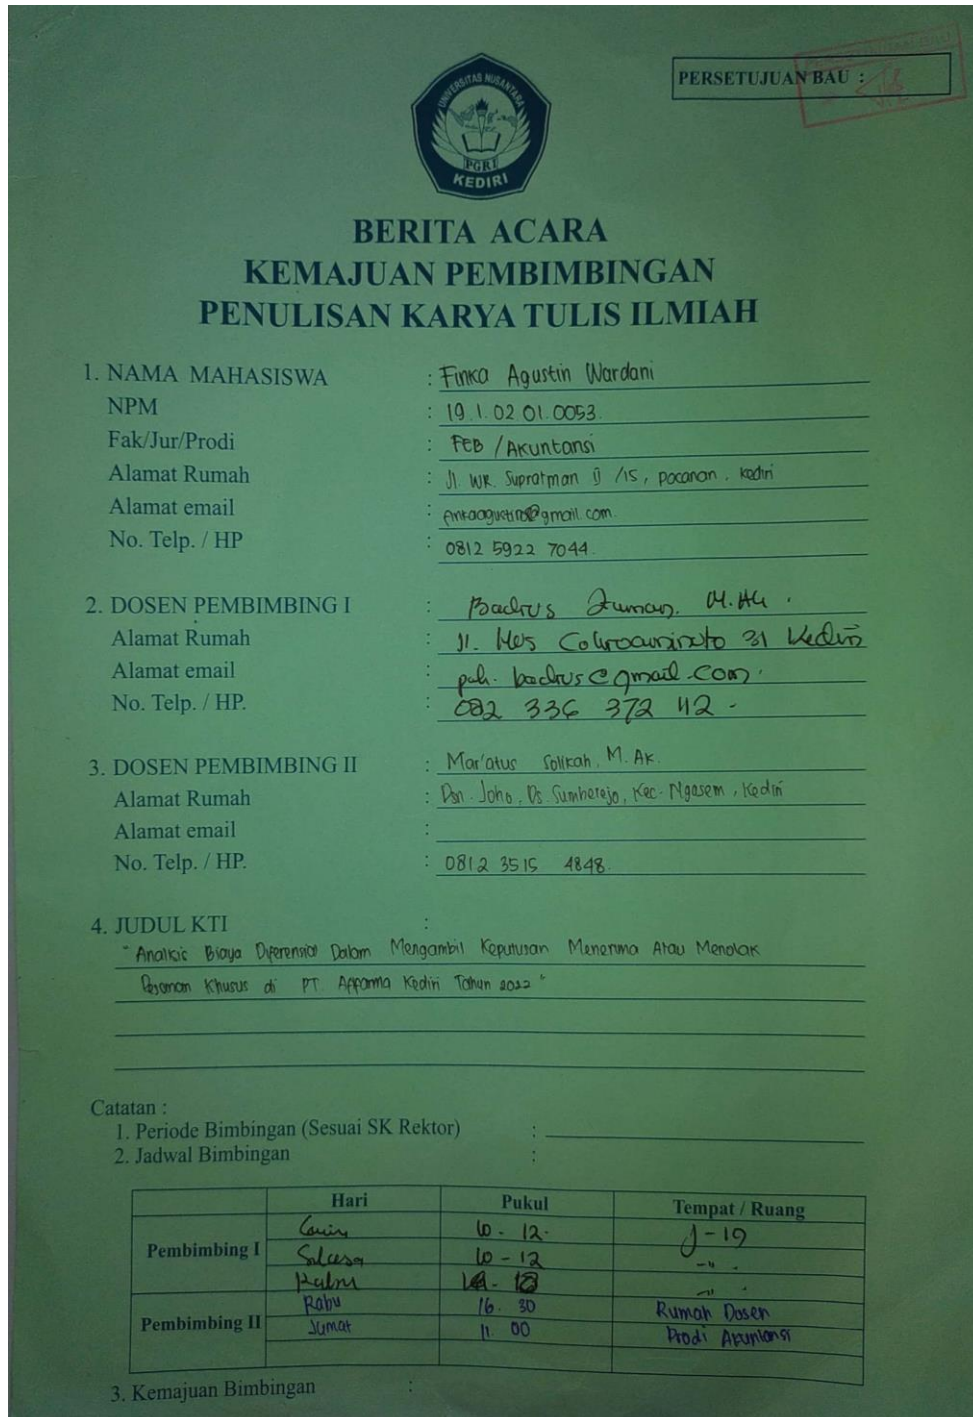 PERSETUJUAN BAU :
UNIVERSITAS NUSANTARA
PGRI
KEDIRI
BERITA ACARA
KEMAJUAN PEMBIMBINGAN
PENULISAN KARYA TULIS ILMIAH
1. NAMA MAHASISWA : Finka Agustin Wardani
NPM : 19.1.02.01.0053.
Fak/Jur/Prodi : FEB / Akuntansi
Alamat Rumah : Jl. WR. Supratman /15, pocanan, Kediri
Alamat email : @gmail.com.
No. Telp. / HP : 0812 5922 7044.
2. DOSEN PEMBIMBING I : Badrus Zuman. M.Ak.
Alamat Rumah : Jl. 31 Kediri
Alamat email : pak.badrus@gmail.com.
No. Telp. / HP. : 082 336 372 42 -
3. DOSEN PEMBIMBING II : Mar'atus Solikah, M.Ak.
Alamat Rumah : Dsn. Joho, Ds. Sumberejo, Kec. Ngasem, Kediri
Alamat email :
No. Telp. / HP. : 0812 3515 4848.
4. JUDUL KTI :
"Analisis Biaya Diferensial Dalam Mengambil Keputusan Menerima Atau Menolak
Pesanan Khusus di PT. Kediri Tahun 2022"
Catatan :
1. Periode Bimbingan (Sesuai SK Rektor) :
2. Jadwal Bimbingan :
Hari Pukul Tempat / Ruang
Pembimbing I
Senin 10 - 12. J-19
Selasa 10 - 12 -"-.
Rabu -"-.
Pembimbing II
Rabu 16.30 Rumah Dosen
Jumat 11.00 Prodi Akuntansi
3. Kemajuan Bimbingan :